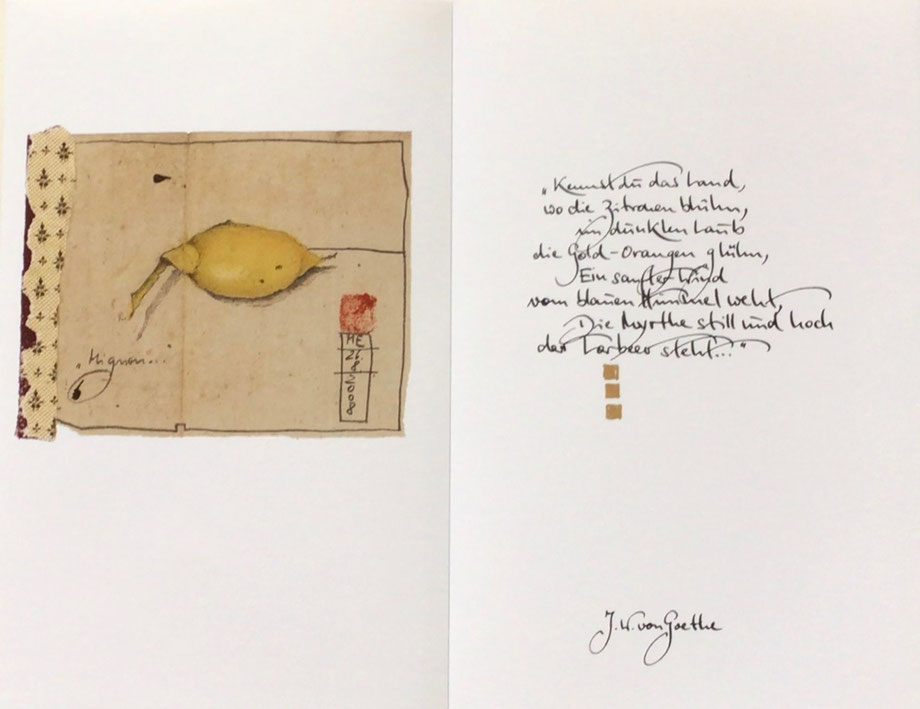 „Mignon..."
ME
26
8
2008
„Kennst du das Land,
wo die Zitronen blühn,
im dunklen Laub
die Gold-Orangen glühn,
Ein sanfter Wind
vom blauen Himmel weht,
Die Myrthe still und hoch
der Lorbeer steht..."
J. W. von Goethe